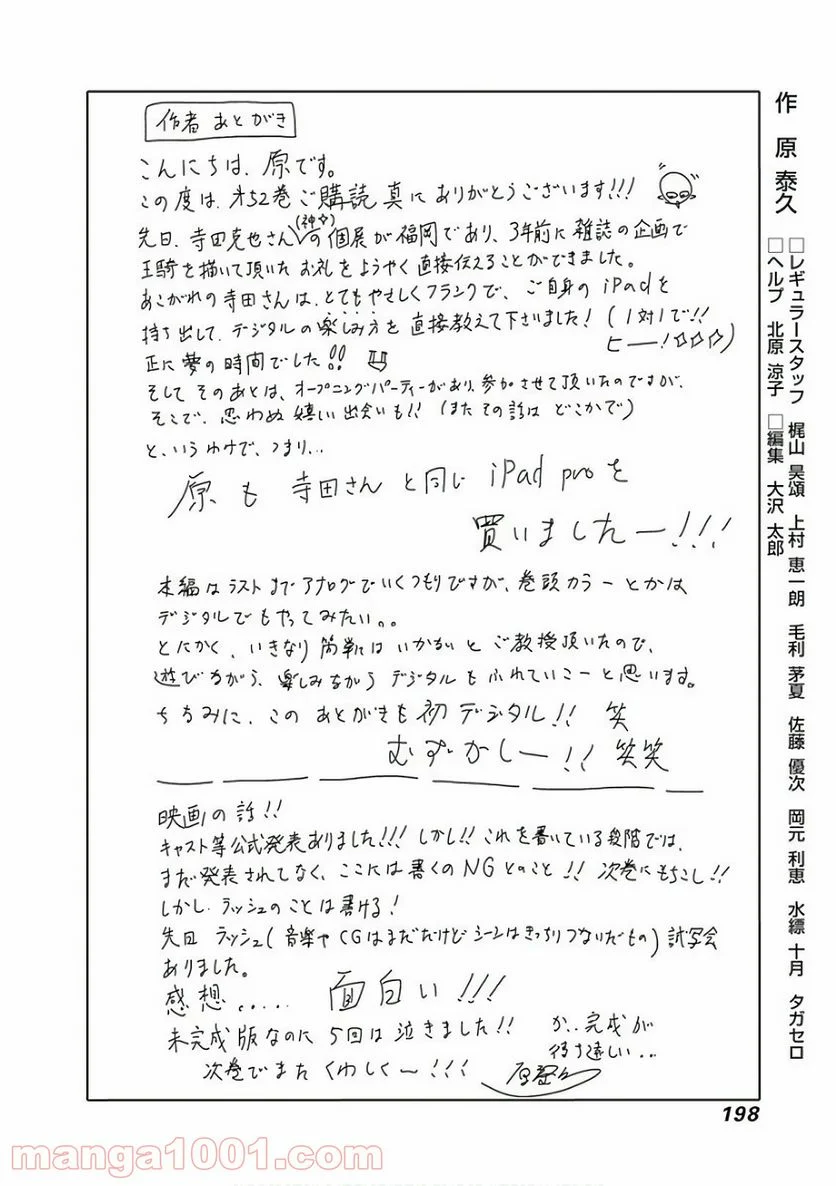 作者 あとがき
こんにちは、原です。
この度は、才52巻ご購読真にありがとうございます!!!
先日、寺田克也さん(神☆)の個展が福岡であり、3年前に雑誌の企画で
王騎を描いて頂いたお礼をようやく直接伝えることができました。
あこがれの寺田さんは、とてもやさしくフランクで、ご自身のiPadを
持ち出して、デジタルの楽しみ方を直接教えて下さいました!(1対1で!!
ヒー!☆☆☆)
正に夢の時間でした!!
そしてそのあとは、オープニングパーティーがあり、参加させて頂いたのですが、
そこで、思わぬ嬉しい出会いも!!(またその話はどこかで)
と、いうわけで、つまり...
原も寺田さんと同じiPad proを
買いましたー!!!
本編はラストまでアナログでいくつもりですが、巻頭カラーとかは
デジタルでもやってみたい。。
とにかく、いきなり簡単にはいかないとご教授頂いたので、
遊びながら、楽しみながらデジタルもふれていこーと思います。
ちなみに、このあとがきも初デジタル!! 笑
むずかしー!! 笑笑
映画の話!!
キャスト等公式発表ありました!!! しかし!! これを書いている段階では、
まだ発表されてなく、ここには書くのNGとのこと!! 次巻にもちこし!!
しかし、ラッシュのことは書ける!
先日ラッシュ(音楽やCGはまだだけどシーンはきっちりつないだもの)試写会
ありました。
感想..... 面白い!!!
未完成版なのに5回は泣きました!! か..完成が
待ち遠しい...
次巻でまたくわしく〜!!!
原泰久
作 原 泰久
□レギュラースタッフ 梶山 昊頌 上村 恵一朗 毛利 茅夏 佐藤 優次 岡元 利恵 水縹 十月 タガセロ
□ヘルプ 北原 涼子 □編集 大沢 太郎
198
manga1001.com